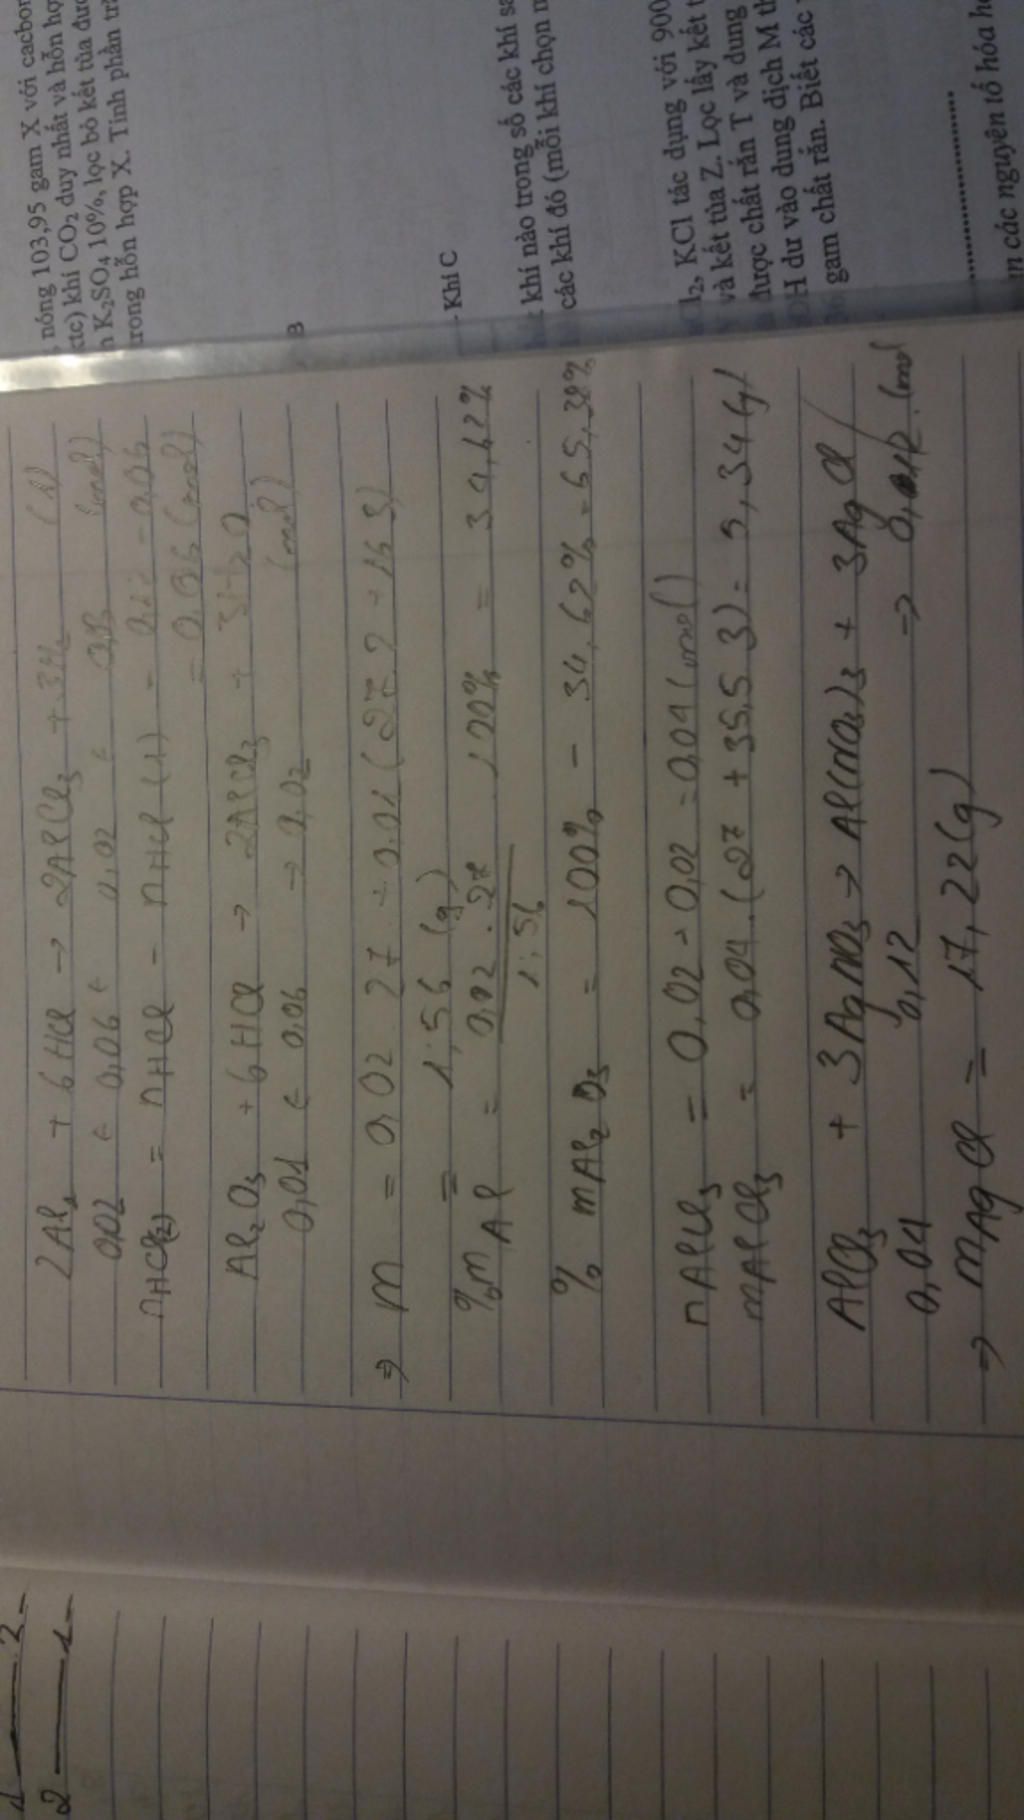 nóng 103,95 gam X với cacbon
ctc) khí CO₂ duy nhất và hỗn hợ
K₂SO₄ 10%, lọc bỏ kết tủa đượ
trong hỗn hợp X. Tính phần tră
B
- Khí C
khí nào trong số các khí sa
các khí đó (mỗi khí chọn m
KCl tác dụng với 900
và kết tủa Z. Lọc lấy kết t
được chất rắn T và dung
H dư vào dung dịch M th
gam chất rắn. Biết các
các nguyên tố hóa h
2Al + 6HCl → 2AlCl₃ + 3H₂ (1)
0,02 ← 0,06 ← 0,02 ← 0,03 (mol)
nHCl(2) = nHCl - nHCl (1) = 0,12 - 0,06
= 0,06 (mol)
Al₂O₃ + 6HCl → 2AlCl₃ + 3H₂O
0,01 ← 0,06 → 0,02 (mol)
⇒ m = 0,02 . 27 + 0,01 (27.2 + 16.3)
= 1,56 (g)
%mAl = 0,02 . 27 / 1,56 . 100% = 34,62%
% mAl₂O₃ = 100% - 34,62% = 65,38%
nAlCl₃ = 0,02 + 0,02 = 0,04 (mol)
mAlCl₃ = 0,04 . (27 + 35,5.3) = 5,34 (g)
AlCl₃ + 3AgNO₃ → Al(NO₃)₃ + 3AgCl
0,04 0,12 → 0,12 (mol
⇒ mAgCl = 17,22 (g)
1 3
2 1